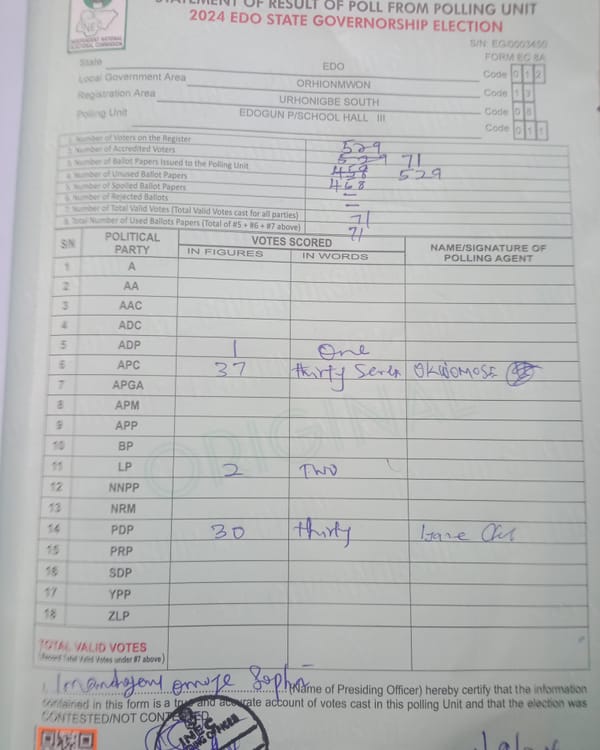 STATEMENT OF RESULT OF POLL FROM POLLING UNIT
2024 EDO STATE GOVERNORSHIP ELECTION
INEC
INDEPENDENT NATIONAL ELECTORAL COMMISSION
S/N: EG/0003450
FORM EC 8A
State EDO Code 0 1 2
Local Government Area ORHIONMWON Code 1 3
Registration Area URHONIGBE SOUTH Code 0 8
Polling Unit EDOGUN P/SCHOOL HALL III Code 0 1 1
1. Number of Voters on the Register 529
2. Number of Accredited Voters 529 71
3. Number of Ballot Papers Issued to the Polling Unit 458 529
4. Number of Unused Ballot Papers 468
5. Number of Spoiled Ballot Papers –
6. Number of Rejected Ballots –
7. Number of Total Valid Votes (Total Valid Votes cast for all parties) 71
8. Total Number of Used Ballots Papers (Total of #5 + #6 + #7 above) 71
S/N POLITICAL PARTY VOTES SCORED NAME/SIGNATURE OF POLLING AGENT
IN FIGURES IN WORDS
1 A
2 AA
3 AAC
4 ADC
5 ADP 1 One
6 APC 37 thirty Seven OKWOMOSE
7 APGA
8 APM
9 APP
10 BP
11 LP 2 TWO
12 NNPP
13 NRM
14 PDP 30 thirty
15 PRP
16 SDP
17 YPP
18 ZLP
ORIGINAL
TOTAL VALID VOTES
(Record Total Valid Votes under #7 above)
I, (Name of Presiding Officer) hereby certify that the information
contained in this form is a true and accurate account of votes cast in this polling Unit and that the election was
CONTESTED/NOT CONTESTED
INEC